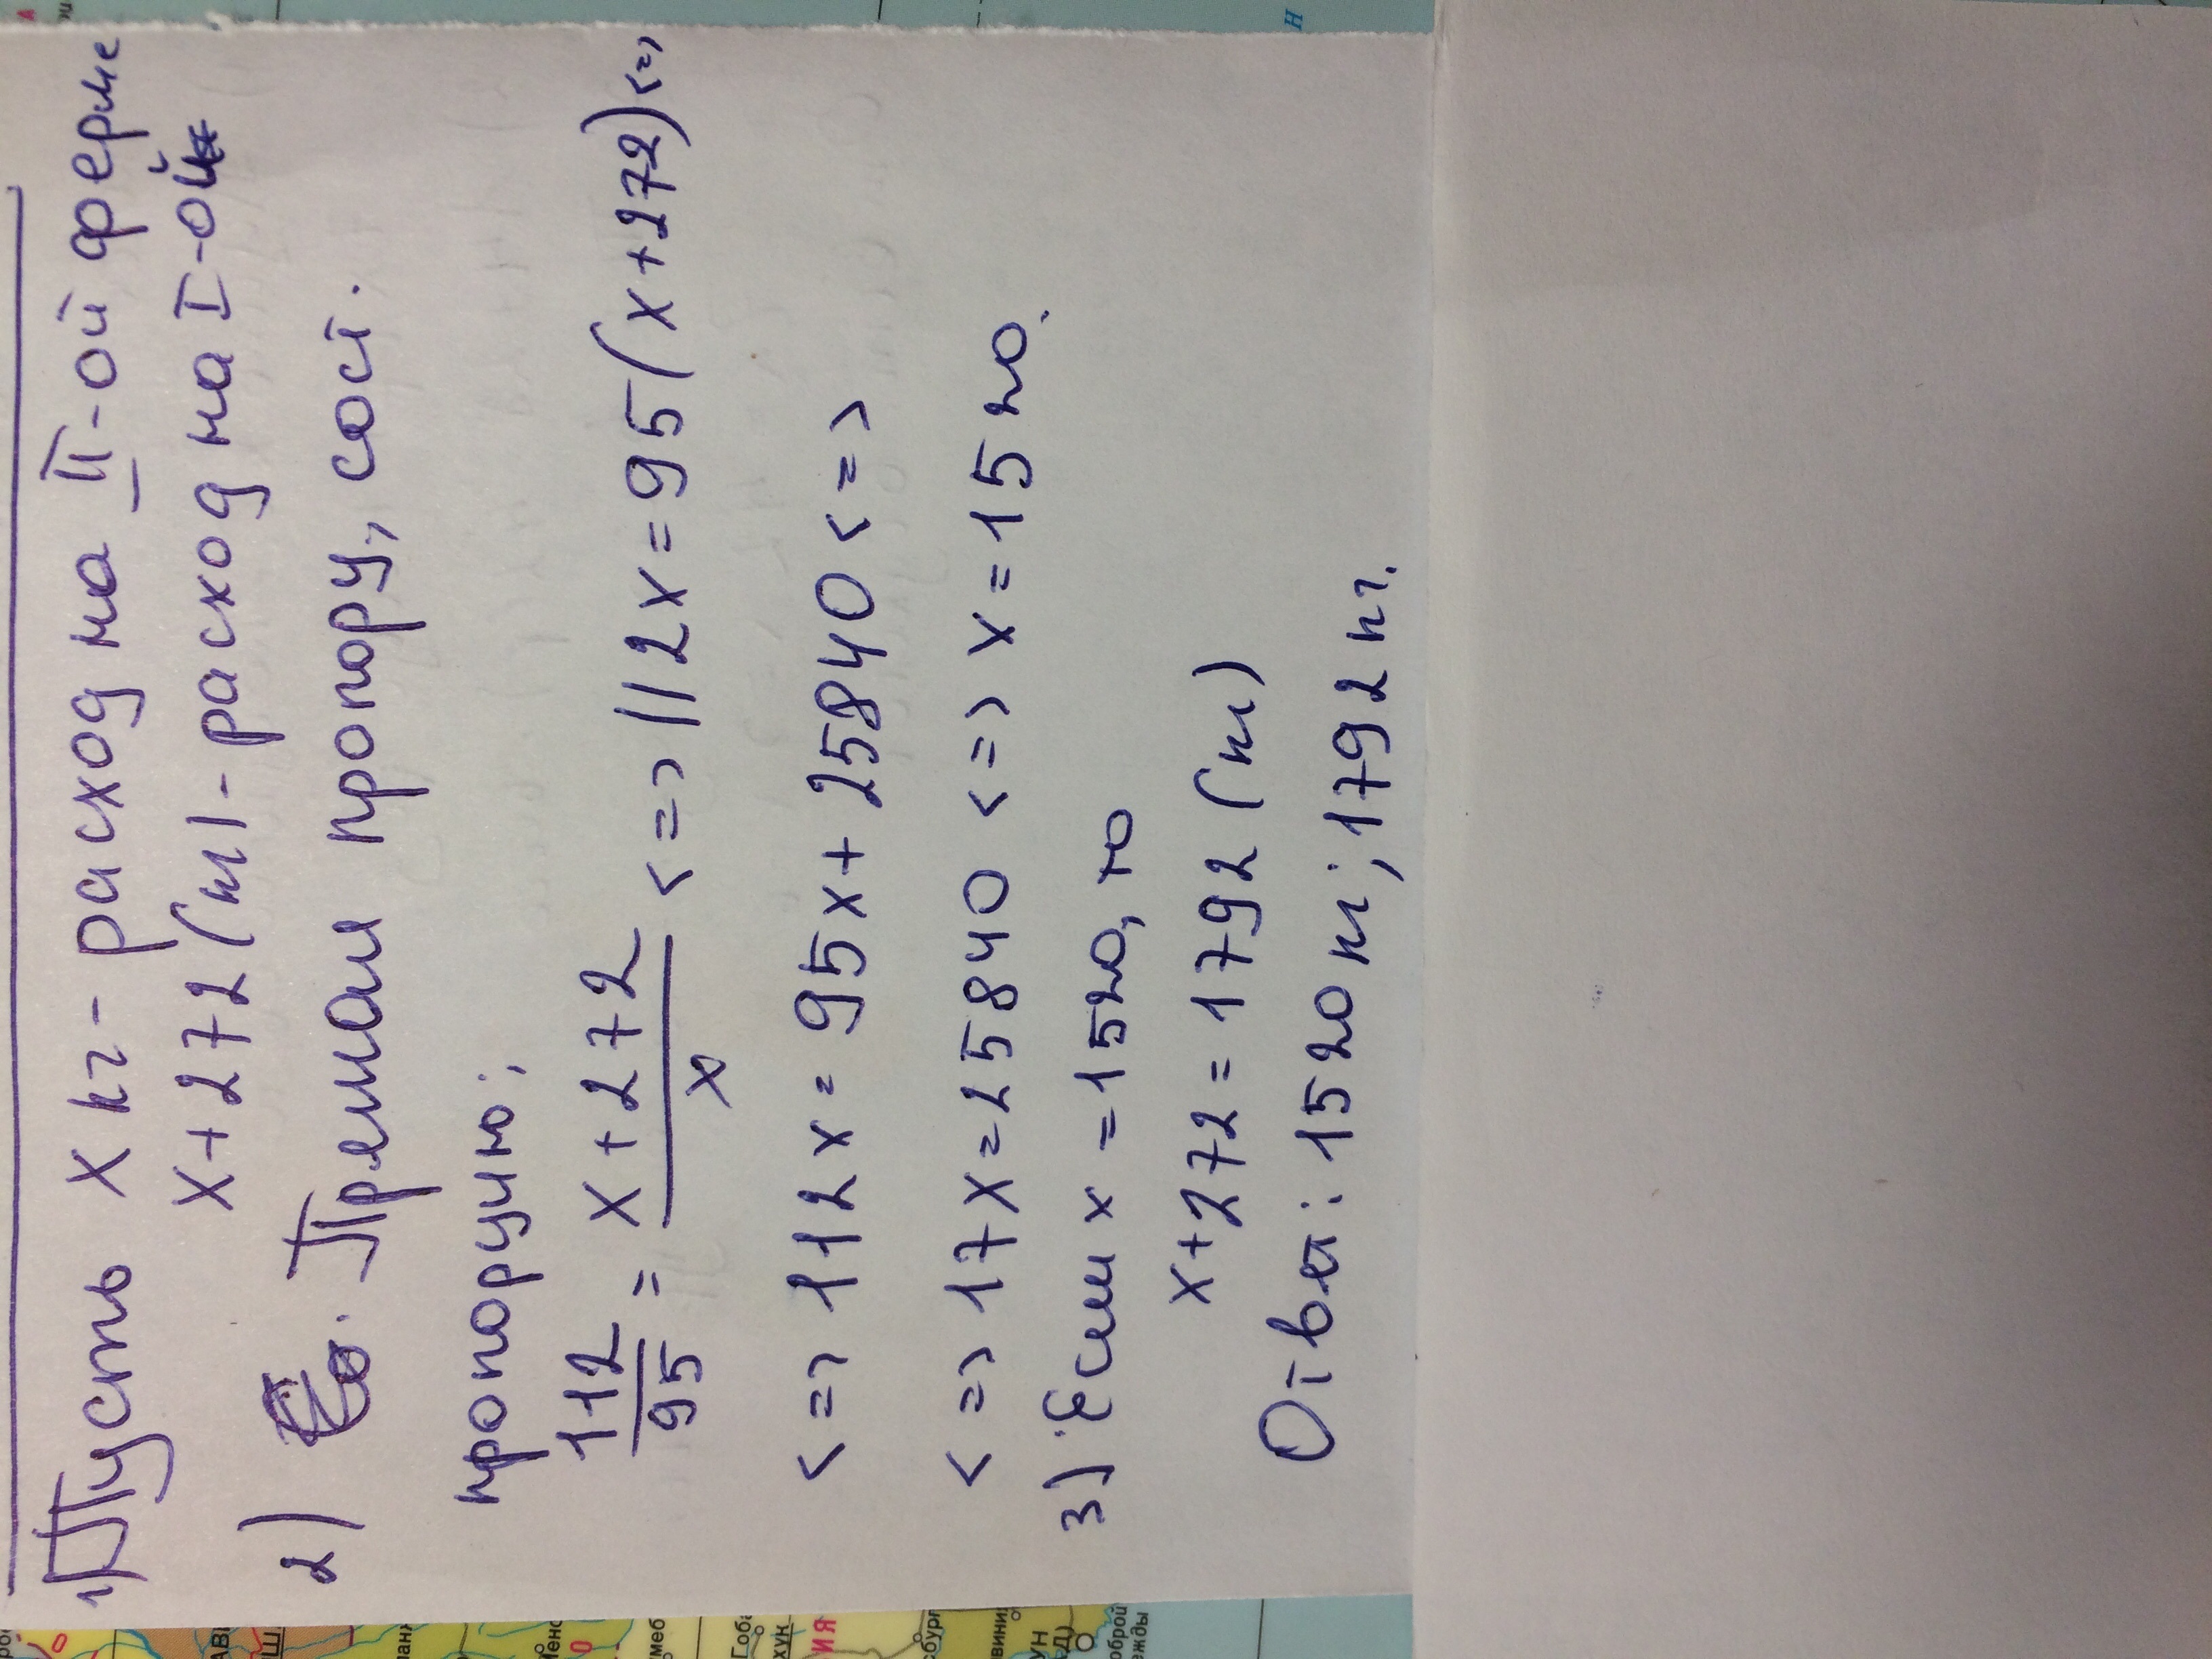 1) Пусть x кг - расход на II-ой ферме
x+272 (кг) - расход на I-ой
2) Премом пропору, сост.
пропорцию:
112/95 = x+272/x <=> 112x=95(x+272)<=>
<=> 112x=95x+25840<=>
<=> 17x=25840 <=> x=1520.
3) Если x=1520, то
x+272=1792 (кг)
Ответ: 1520кг; 1792кг.